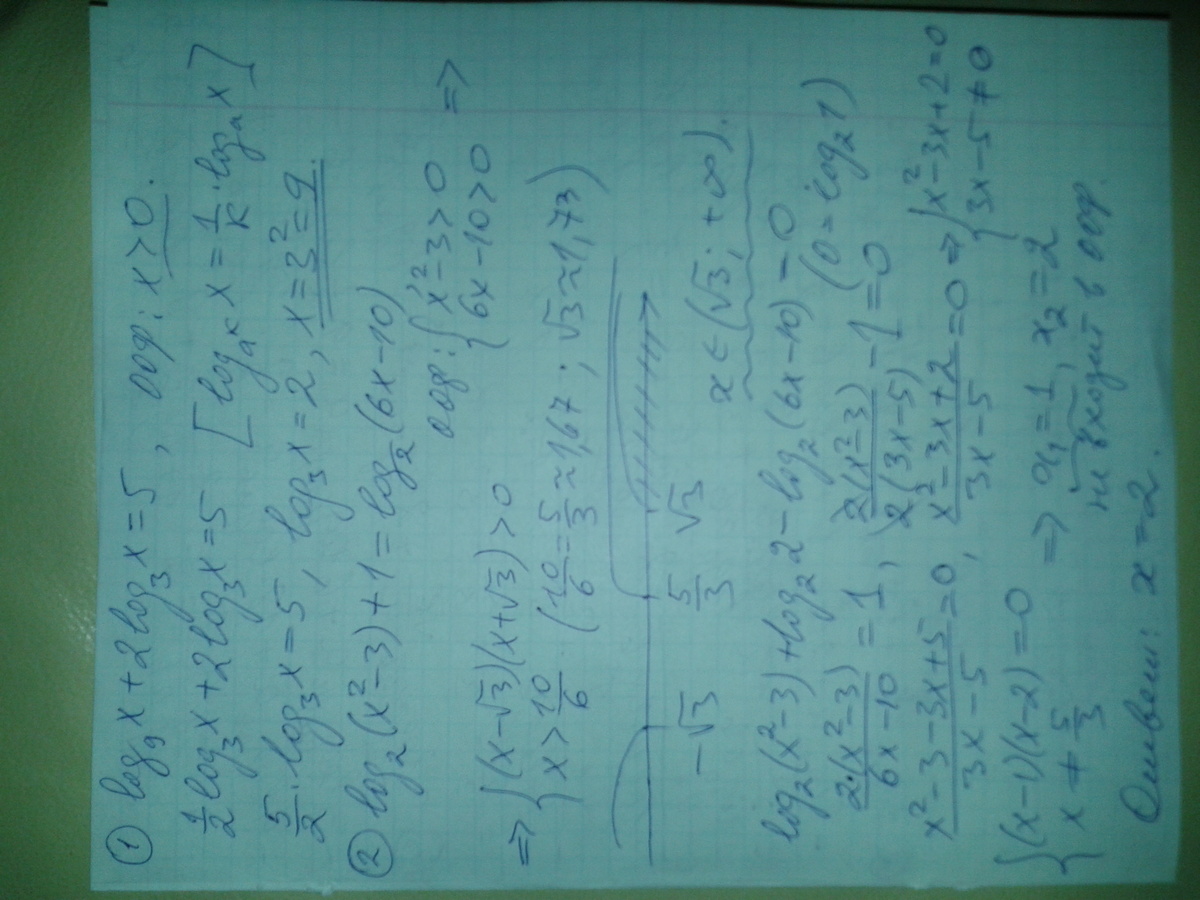 ① log₉x + 2log₃x = 5, оог: x > 0.
½log₃x + 2log₃x = 5 [log_{a^k} x = 1/k · log_a x]
5/2 · log₃x = 5, log₃x = 2, x = 3² = 9.
② log₂(x² - 3) + 1 = log₂(6x - 10)
оог: { x² - 3 > 0
6x - 10 > 0 =>
=> { (x - √3)(x + √3) > 0
x > 10/6 (10/6 = 5/3 ≈ 1,67; √3 ≈ 1,73)
-√3 5/3 √3
x ∈ (√3; +∞).
log₂(x² - 3) + log₂2 - log₂(6x - 10) = 0
2·(x² - 3)/(6x - 10) = 1, 2(x² - 3)/(2(3x - 5)) - 1 = 0 (0 = log₂1)
(x² - 3 - 3x + 5)/(3x - 5) = 0, (x² - 3x + 2)/(3x - 5) = 0 => { x² - 3x + 2 = 0
3x - 5 ≠ 0
{ (x - 1)(x - 2) = 0
x ≠ 5/3 => x₁ = 1, x₂ = 2
не входит в оог.
Ответ: x = 2.